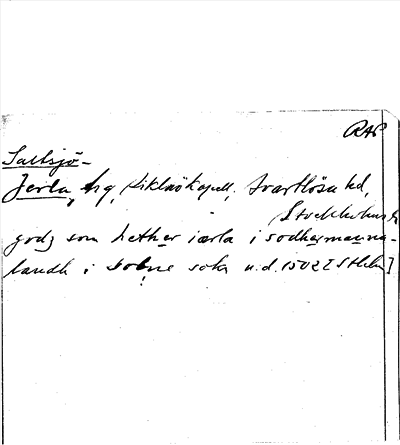 RAP
Saltsjö-
Jerla, hg, Siklaö kapell, Svartlösa hd,
Stockholms
godz som hether iærla i sodhermanna-
landh i botne sokn u.d. 1502 [Sthlm]